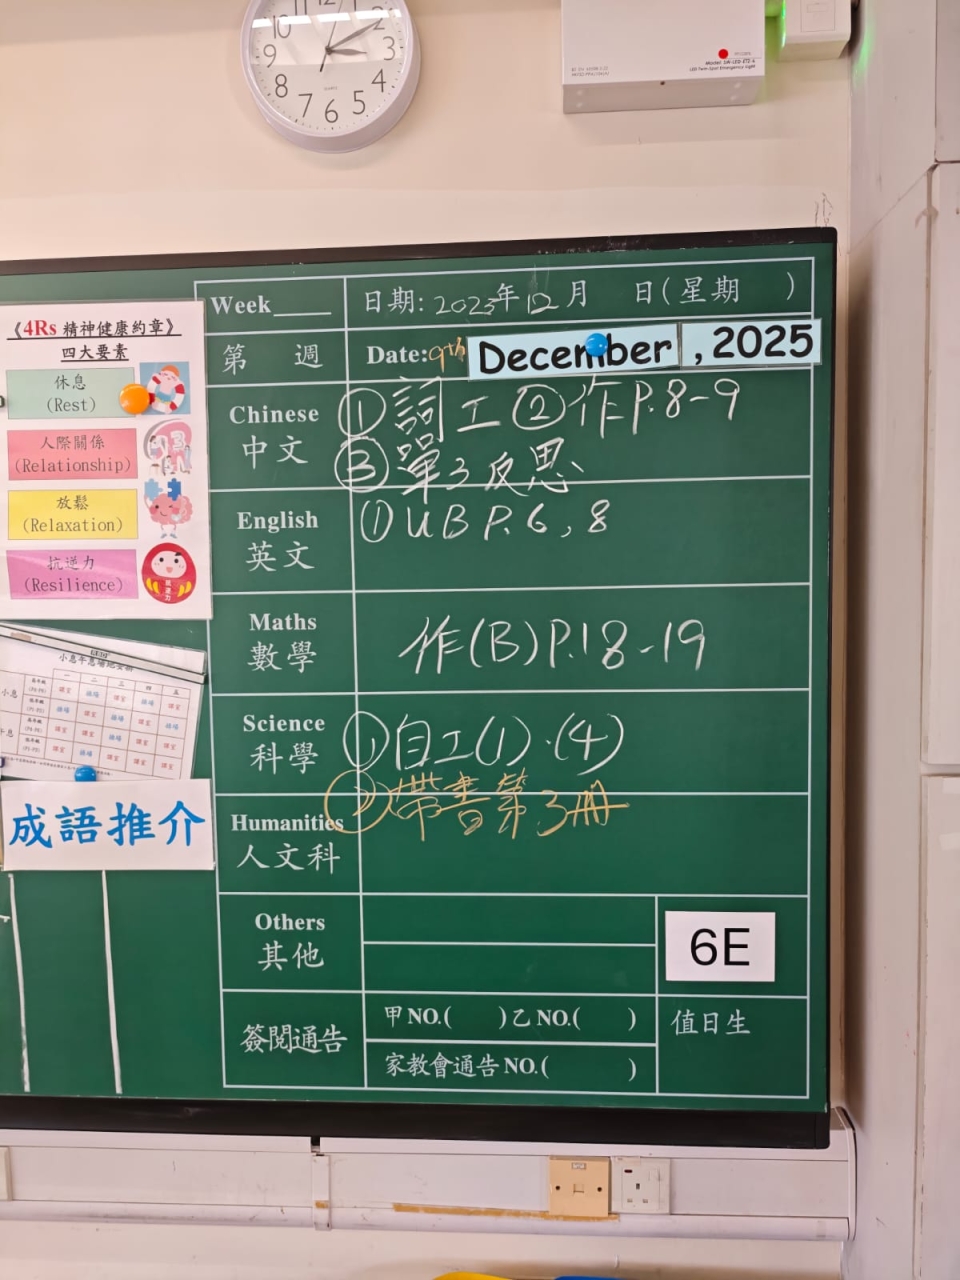 10 2
9 3
8 4
7 6 5
QUARTZ
《4Rs 精神健康約章》
四大要素
休息
(Rest)
人際關係
(Relationship)
放鬆
(Relaxation)
抗逆力
(Resilience)
一 二 三 四 五
小息
成語推介
Week____ 日期: 2023年12月 日(星期 )
第 週 Date: 9th December , 2025
Chinese ①詞工 ②作P.8-9
中文 ③單3反思
English ①UB P.6,8
英文
Maths 作(B)P.18-19
數學
Science ①自工(1)·(4)
科學
②帶書第3冊
Humanities
人文科
Others
其他
6E
簽閱通告 甲NO.( )乙NO.( ) 值日生
家教會通告NO.( )